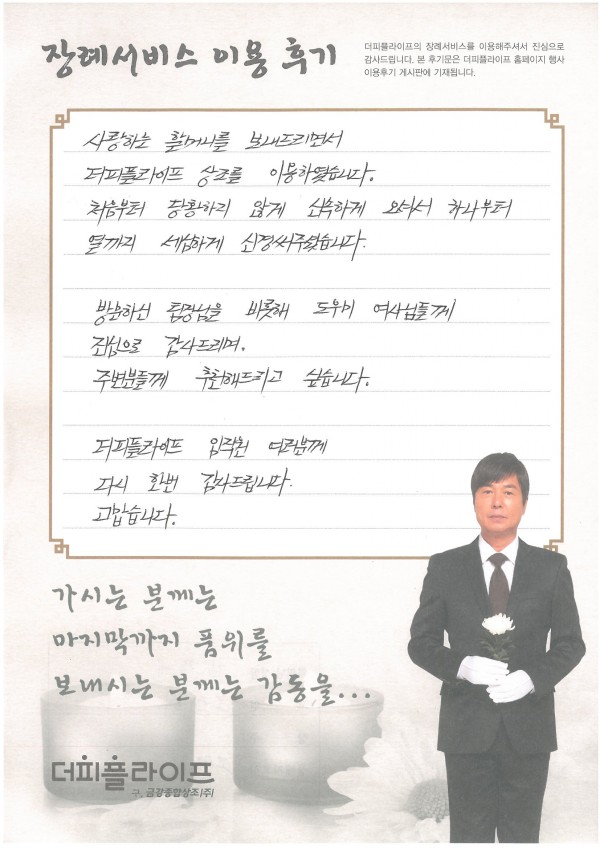 장례서비스 이용 후기
더피플라이프의 장례서비스를 이용해주셔서 진심으로
감사드립니다. 본 후기문은 더피플라이프 홈페이지 행사
이용후기 게시판에 기재됩니다.
사랑하는 할머니를 보내드리면서
더피플라이프 상조를 이용하였습니다.
처음부터 당황하지 않게 신속하게 오셔서 하나부터
열까지 세심하게 신경써주셨습니다.
방문하신 팀장님을 비롯해 도우미 여사님들께
진심으로 감사드리며,
주변분들께 추천해드리고 싶습니다.
더피플라이프 임직원 여러분께
다시 한번 감사드립니다.
고맙습니다.
가시는 분께는
마지막까지 품위를
보내시는 분께는 감동을...
더피플라이프
구. 금강종합상조(주)